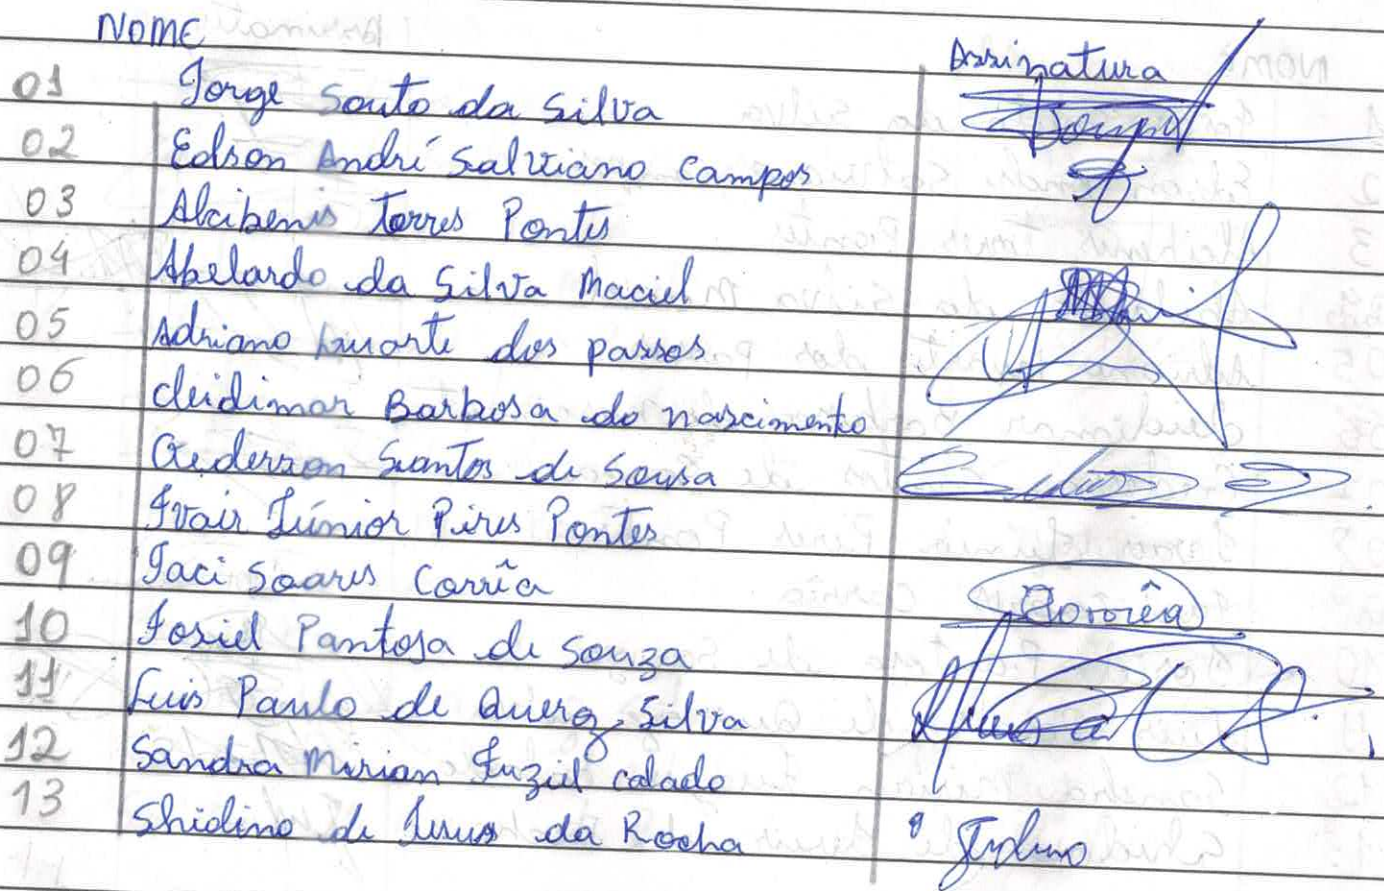 NOME Assinatura
01 Jorge Souto da Silva
02 Edson André Salviano Campos
03 Alcibenis Torres Pontes
04 Abelardo da Silva Maciel
05 Adriano Duarte dos passos
06 cleidimar Barbosa do nascimento
07 Santos de Sousa
08 Ivair Júnior Pires Pontes
09 Iaci Soares Corrêa Corrêa
10 Josiel Pantoja de Souza
11 Luis Paulo de Silva
12 Sandra Mirian calado
13 de Jesus da Rocha